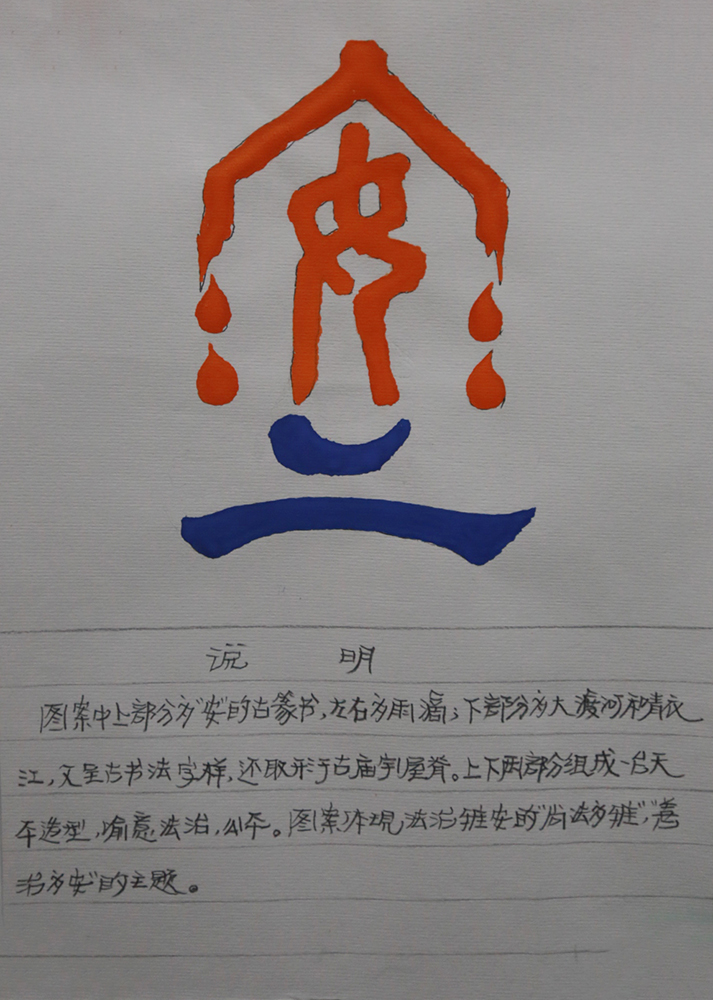 安
说 明
图案中上部分为"安"的古篆书,左右为雨滴;下部分为大渡河和青衣
江,又呈古书法字样,还取形于古庙宇屋脊。上下两部分组成一台天
平造型,喻意法治,公平。图案体现法治雅安的"尚法为雅","善
治为安"的主题。